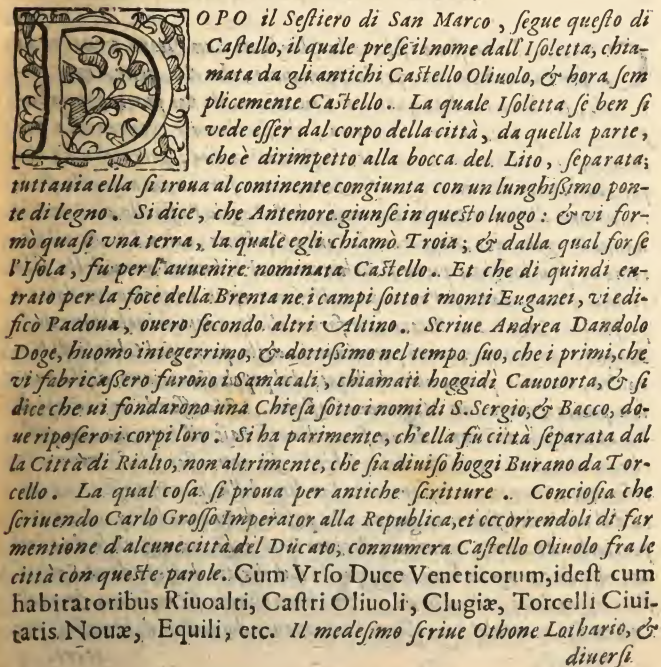 DOPO il Sestiero di San Marco, segue questo di
Castello, il quale prese il nome dall'Isoletta, chia-
mata da gli antichi Castello Oliuolo, & hora sem
plicemente Castello. La quale Isoletta se ben si
vede esser dal corpo della città, da quella parte,
che è dirimpetto alla bocca del Lito, separata;
tuttauia ella si troua al continente congiunta con un lunghißimo pon-
te di legno. Si dice, che Antenore giunse in questo luogo: & vi for-
mò quasi vna terra, la quale egli chiamò Troia; & dalla qual forse
l'Isola, fu per l'auuenire nominata Castello. Et che di quindi en-
trato per la foce della Brenta ne i campi sotto i monti Euganei, vi edi-
ficò Padoua, ouero secondo altri Altino. Scriue Andrea Dandolo
Doge, huomo integerrimo, & dottißimo nel tempo suo, che i primi, che
vi fabricaßero furono i Samacali, chiamati hoggidì Cauotorta, & si
dice che ui fondarono una Chiesa sotto i nomi di S. Sergio, & Bacco, do-
ue riposero i corpi loro. Si ha parimente, ch'ella fù città separata dal
la Città di Rialto, non altrimente, che sia diuiso hoggi Burano da Tor-
cello. La qual cosa si proua per antiche scritture. Conciosia che
scriuendo Carlo Grosso Imperator alla Republica, et occorrendoli di far
mentione d'alcune città del Ducato, connumera Castello Oliuolo fra le
città con queste parole. Cum Vrso Duce Veneticorum, idest cum
habitatoribus Riuoalti, Castri Oliuoli, Clugiæ, Torcelli Ciui-
tatis Nouæ, Equili, etc. Il medesimo scriue Othone Lothario, &
diuersi